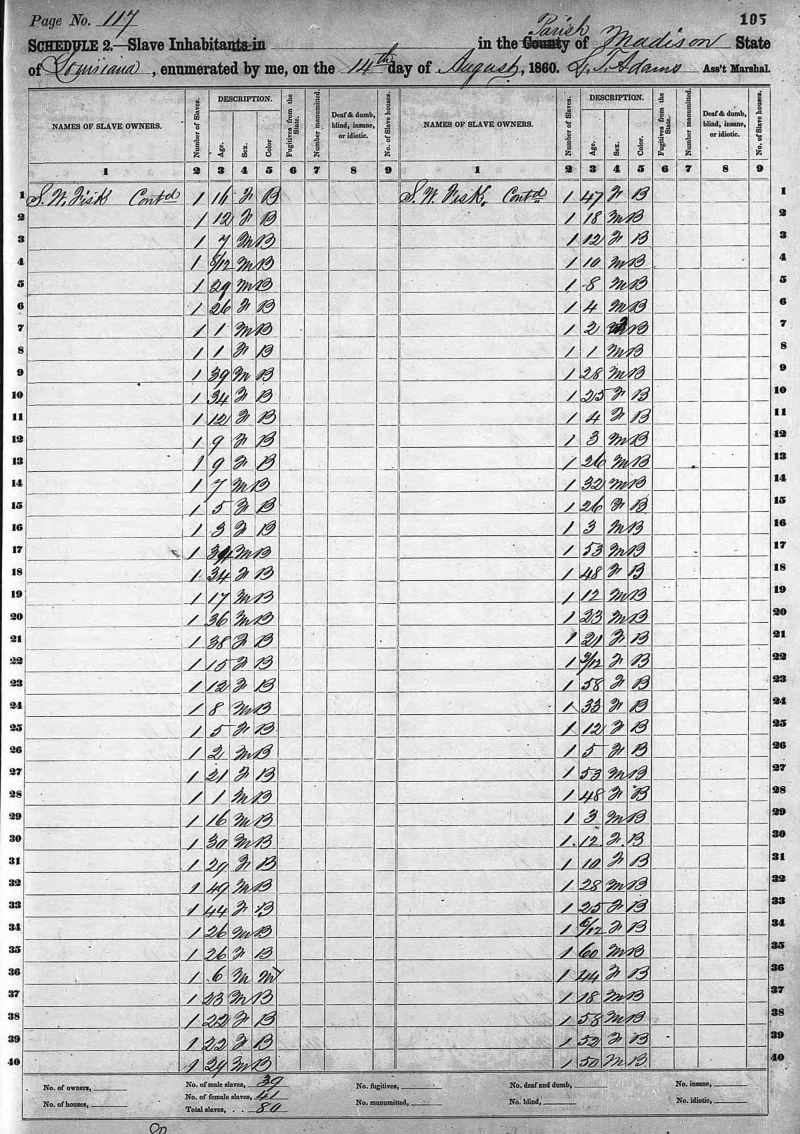 Page No. 117
105
SCHEDULE 2.—Slave Inhabitants in in the County Parish of Madison State
of Louisiana, enumerated by me, on the 14th day of August, 1860. Ass't Marshal.
NAMES OF SLAVE OWNERS. Number of Slaves. DESCRIPTION. Age. Sex. Color Fugitives from the State. Number manumitted. Deaf & dumb, blind, insane, or idiotic. No. of Slave houses. NAMES OF SLAVE OWNERS. Number of Slaves. DESCRIPTION. Age. Sex. Color. Fugitives from the State. Number manumitted. Deaf & dumb, blind, insane, or idiotic. No. of Slave houses.
1 2 3 4 5 6 7 8 9 1 2 3 4 5 6 7 8 9
1 S. W. Fisk Contd 1 16 F B S. W. Fisk, Contd 1 47 F B 1
2 1 12 F B 1 18 M B 2
3 1 7 M B 1 12 F B 3
4 1 /12 M B 1 10 M B 4
5 1 29 M B 1 8 M B 5
6 1 26 F B 1 4 M B 6
7 1 1 M B 1 2 B 7
8 1 1 F B 1 1 M B 8
9 1 39 M B 1 28 M B 9
10 1 34 F B 1 25 F B 10
11 1 12 F B 1 4 F B 11
12 1 9 F B 1 3 M B 12
13 1 9 F B 1 26 M B 13
14 1 7 M B 1 32 M B 14
15 1 5 F B 1 26 F B 15
16 1 3 F B 1 3 M B 16
17 1 M B 1 53 M B 17
18 1 34 F B 1 48 F B 18
19 1 17 M B 1 12 M B 19
20 1 36 M B 1 23 M B 20
21 1 38 F B 1 21 F B 21
22 1 15 F B 1 /12 F B 22
23 1 12 F B 1 58 F B 23
24 1 8 M B 1 33 F B 24
25 1 5 F B 1 12 F B 25
26 1 2 M B 1 5 F B 26
27 1 21 F B 1 53 M B 27
28 1 1 M B 1 48 F B 28
29 1 16 M B 1 3 M B 29
30 1 30 M B 1 12 F B 30
31 1 29 F B 1 10 F B 31
32 1 49 M B 1 28 M B 32
33 1 44 F B 1 25 F B 33
34 1 26 M B 1 6/12 F B 34
35 1 26 F B 1 60 M B 35
36 1 6 M M 1 44 F B 36
37 1 23 M B 1 18 M B 37
38 1 22 F B 1 58 M B 38
39 1 22 F B 1 52 F B 39
40 1 29 M B 1 50 M B 40
No. of owners, No. of male slaves, 39 No. fugitives, No. deaf and dumb, No. insane,
No. of houses, No. of female slaves, 41 No. manumitted, No. blind, No. idiotic,
Total slaves, 80